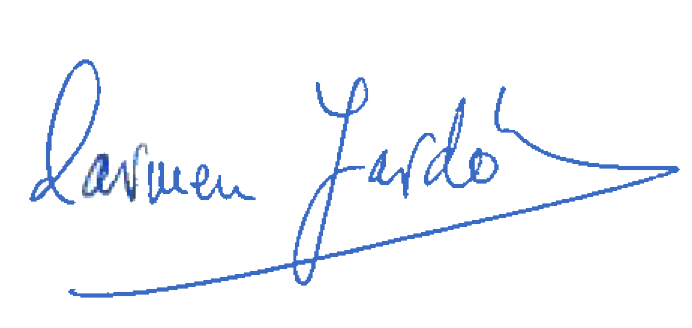 Carmen Jardó